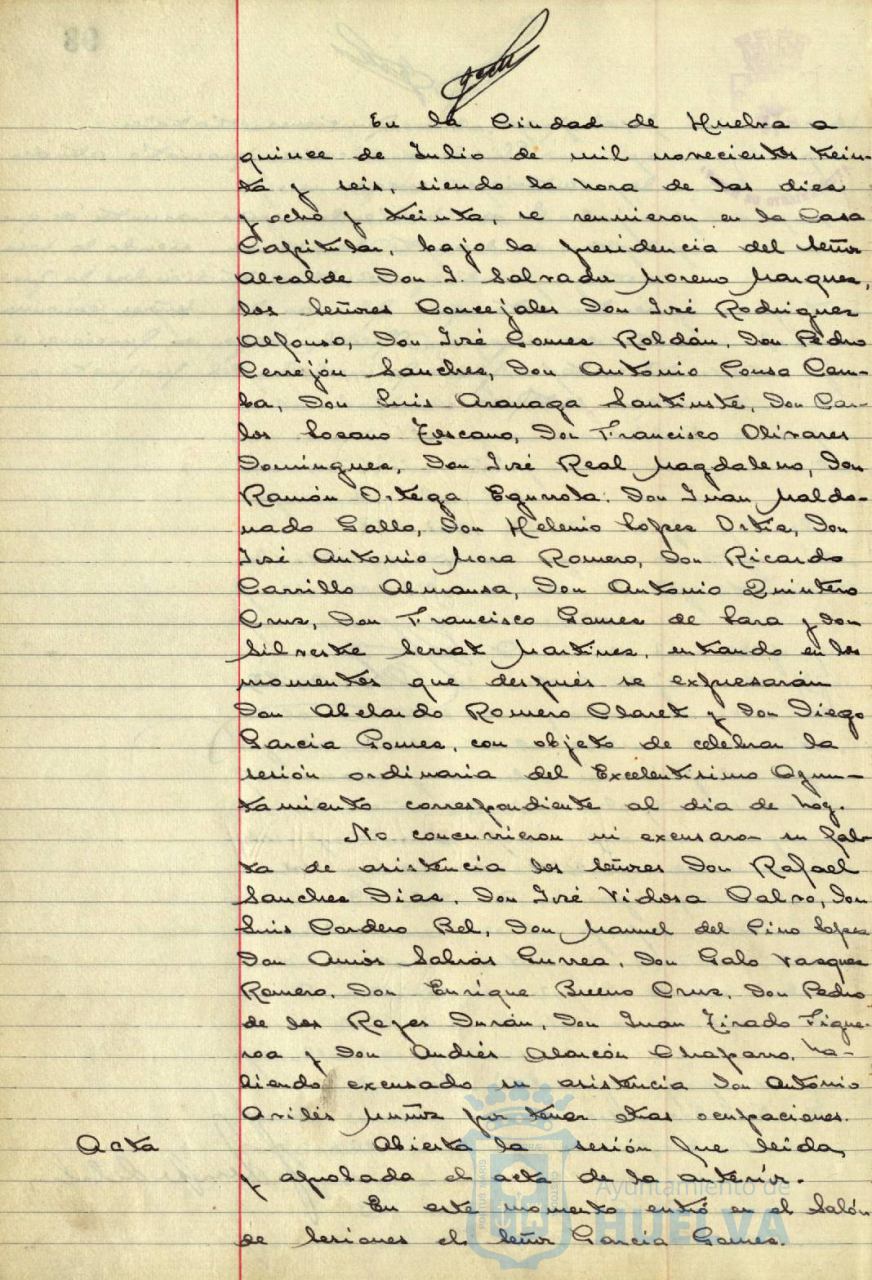 En la Ciudad de Huelva a
quince de Julio de mil novecientos trein-
ta y seis, siendo la hora de las diez
y ocho y treinta, se reunieron en la Casa
Capitular, bajo la presidencia del Señor
Alcalde Don J. Salvador Moreno Marquez,
los Señores Concejales Don José Rodriguez
Alfonso, Don José Gomez Roldán, Don Pedro
Cerrejón Sanchez, Don Antonio Pousa Cam-
ba, Don Luis Aranaga Santiuste, Don Car-
los Lozano Toscano, Don Francisco Olivares
Dominguez, Don José Real Magdaleno, Don
Ramón Ortega Egurrola. Don Juan Maldo-
nado Gallo, Don Helenio Lopez Ortiz, Don
José Antonio Mora Romero, Don Ricardo
Carrillo Almansa, Don Antonio Quintero
Cruz, Don Francisco Gomez de Lara y Don
Silvestre Serrat Martinez, entrando en los
momentos que después se expresarán
Don Abelardo Romero Claret y Don Diego
Garcia Gomez, con objeto de celebrar la
sesión ordinaria del Excelentisimo Ayun-
tamiento correspondiente al dia de hoy.
No concurrieron ni excusaron su fal-
ta de asistencia los Señores Don Rafael
Sanchez Diaz, Don José Vidosa Calvo, Don
Luis Cordero Bel, Don Manuel del Pino Lopez
Don Amós Sabrás Gurrea, Don Galo Vazquez
Romero, Don Enrique Bueno Cruz, Don Pedro
de los Reyes Durán, Don Juan Tirado Figue-
roa y Don Andrés Alarcón Chaparro, ha-
biendo excusado su asistencia Don Antonio
Avilés Muñoz por tener otras ocupaciones.
Acta
Abierta la sesión fue leida
y aprobada el acta de la anterior.
En este momento entró en el Salón
de Sesiones el Señor Garcia Gomez.
Ayuntamiento de
HUELVA